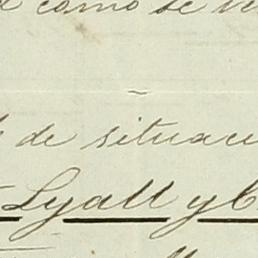 como se
de situaci
Lyall y C